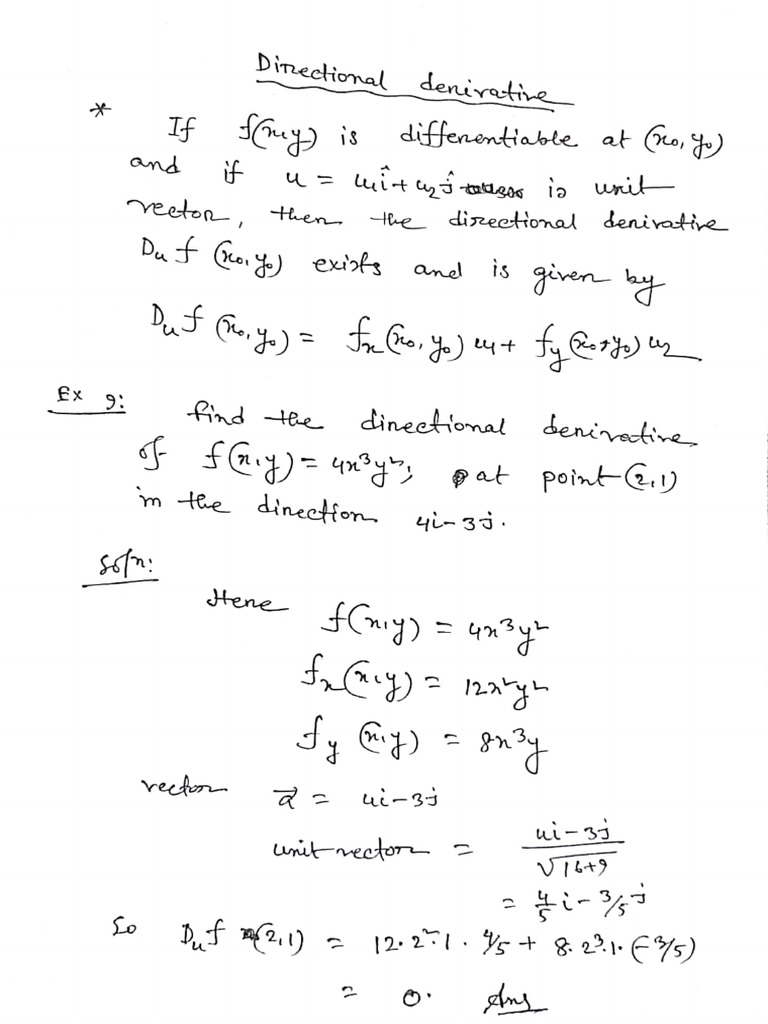 Directional derivative
* If f(x,y) is differentiable at (x₀, y₀)
and if u = u₁î + u₂ĵ is unit
vector, then the directional derivative
Dᵤf (x₀,y₀) exists and is given by
Dᵤf (x₀,y₀) = fₓ(x₀,y₀) u₁ + f_y(x₀,y₀) u₂
Ex 9: find the directional derivative
of f(x,y) = 4x³y²; at point (2,1)
in the direction 4i-3j.
Solⁿ:
Here f(x,y) = 4x³y²
fₓ(x,y) = 12x²y²
f_y (x,y) = 8x³y
vector a⃗ = 4i-3j
unit vector = 4i-3j / √16+9
= 4/5 i - 3/5 j
So Dᵤf (2,1) = 12.2².1. 4/5 + 8.2³.1.(-3/5)
= 0. Ans